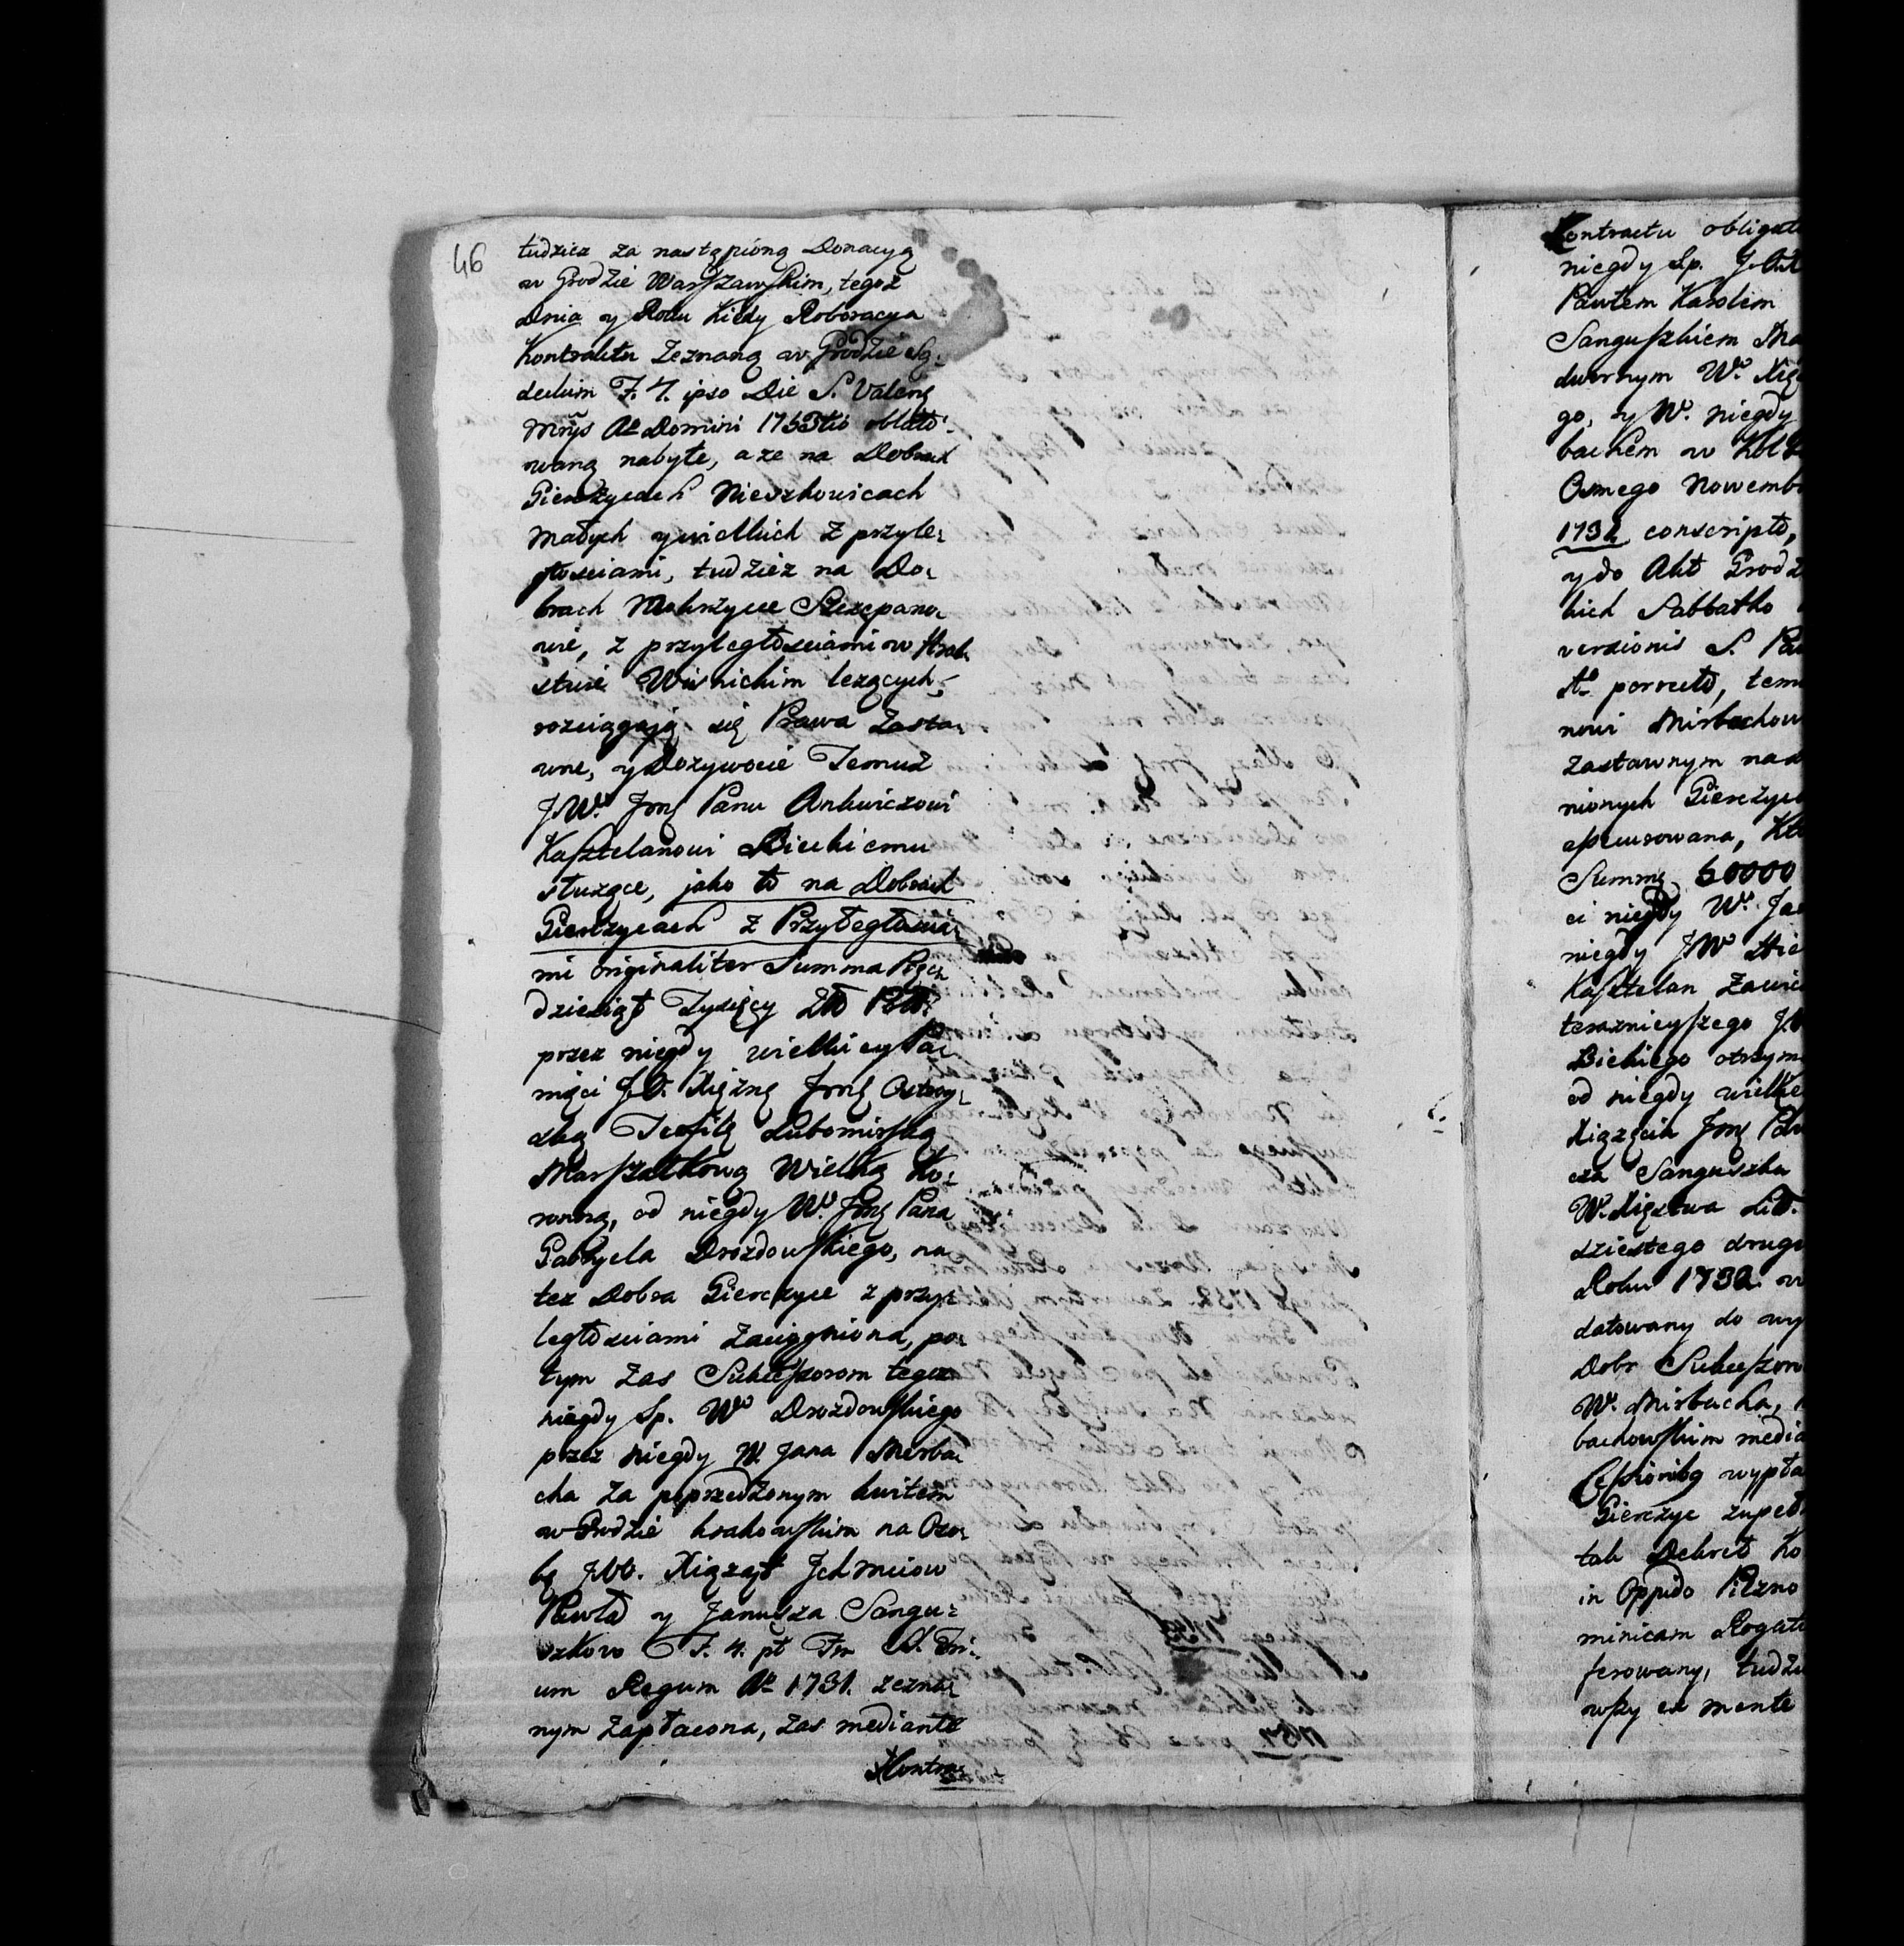 46
tudziez za nastąpioną Donacyą
w Grodzie Warszawskim, tegoż
dnia y Roku kiedy Roboracya
Kontraktu zeznaną w Grodzie Są:
deckim F. 4. ipso Die S. Valent
Mrjs Ao Domini 1753tio oblato:
waną nabyte, a ze na Dobrach
Gierczycach Nieszkowicach
Małych y wielkich z przyle:
głosciami, tudziez na Do:
brach Mokrzysce Szczepano:
wie, z przyległosciami w Hrab:
stwie Wisnickim lezących,
rozciągają się Prawa Zasta:
wne, y Dozywocie Temuz
J.W. Jmć Panu Ankwiczowi
Kasztelanowi Bieckiemu
słuzące, jako to na Dobrach
Gierczycach z Przyległoscia:
mi originaliter Summa Pięć:
dziesiąt Tysięcy Złł Pol:
przez niegdy wielkiey Pa:
mięci J.O. Xiężnę Jmć Ostrog:
ską Teofilę Lubomirską
Marszałkową Wielką Ko:
ronną, od niegdy W. Jmć Pana
Gabryela Drozdowskiego, na
tez Dobra Gierczyce z przy:
ległosciami zaciągniona, po:
tym zas Sukcessorom tegoz
niegdy Sp. W. Drozdowskiego
przez niegdy W. Jana Mirba:
cha za poprzedzonym kwitem
w Grodzie krakowskim na Oso:
bę JOO. Xiąząt Jchmciow
Pawła y Janusza Sangu:
szkow F. 4. pt Fm S. Tri:
um Regum Ao 1731. zezna:
nym zapłacona, zas mediante
Kontra:
Kontractu
niegdy Sp.
Pawłem Karolem
Sanguszkiem
dwornym W.
go, y W. niegdy
bachem w
Osmego Nowemb
1732 conscripto,
y do Akt Grodz
kich Sabbatho
versionis S.
Ao porrecto,
nowi Mirbachow
zastawnym
nionych Gierczyc
assecurowana,
Summę 50000
ci niegdy W.
niegdy JW
Kasztelan
teraznieyszego
Bieckiego otrzym
od niegdy wielkie
Xiązęcia Jmć
cza Sanguszka
W. Xięstwa Lit.
dziestego drugi
Roku 1732 w
datowany do wy
Dobr Sukcesszor
W. Mirbacha,
bachowskim media
Cessionibg wypła
Gierczyc zupeł
tak Dekret Ko
in Oppido Pilzno
minicam Rogat
ferowany, tudz
wszy ex mente